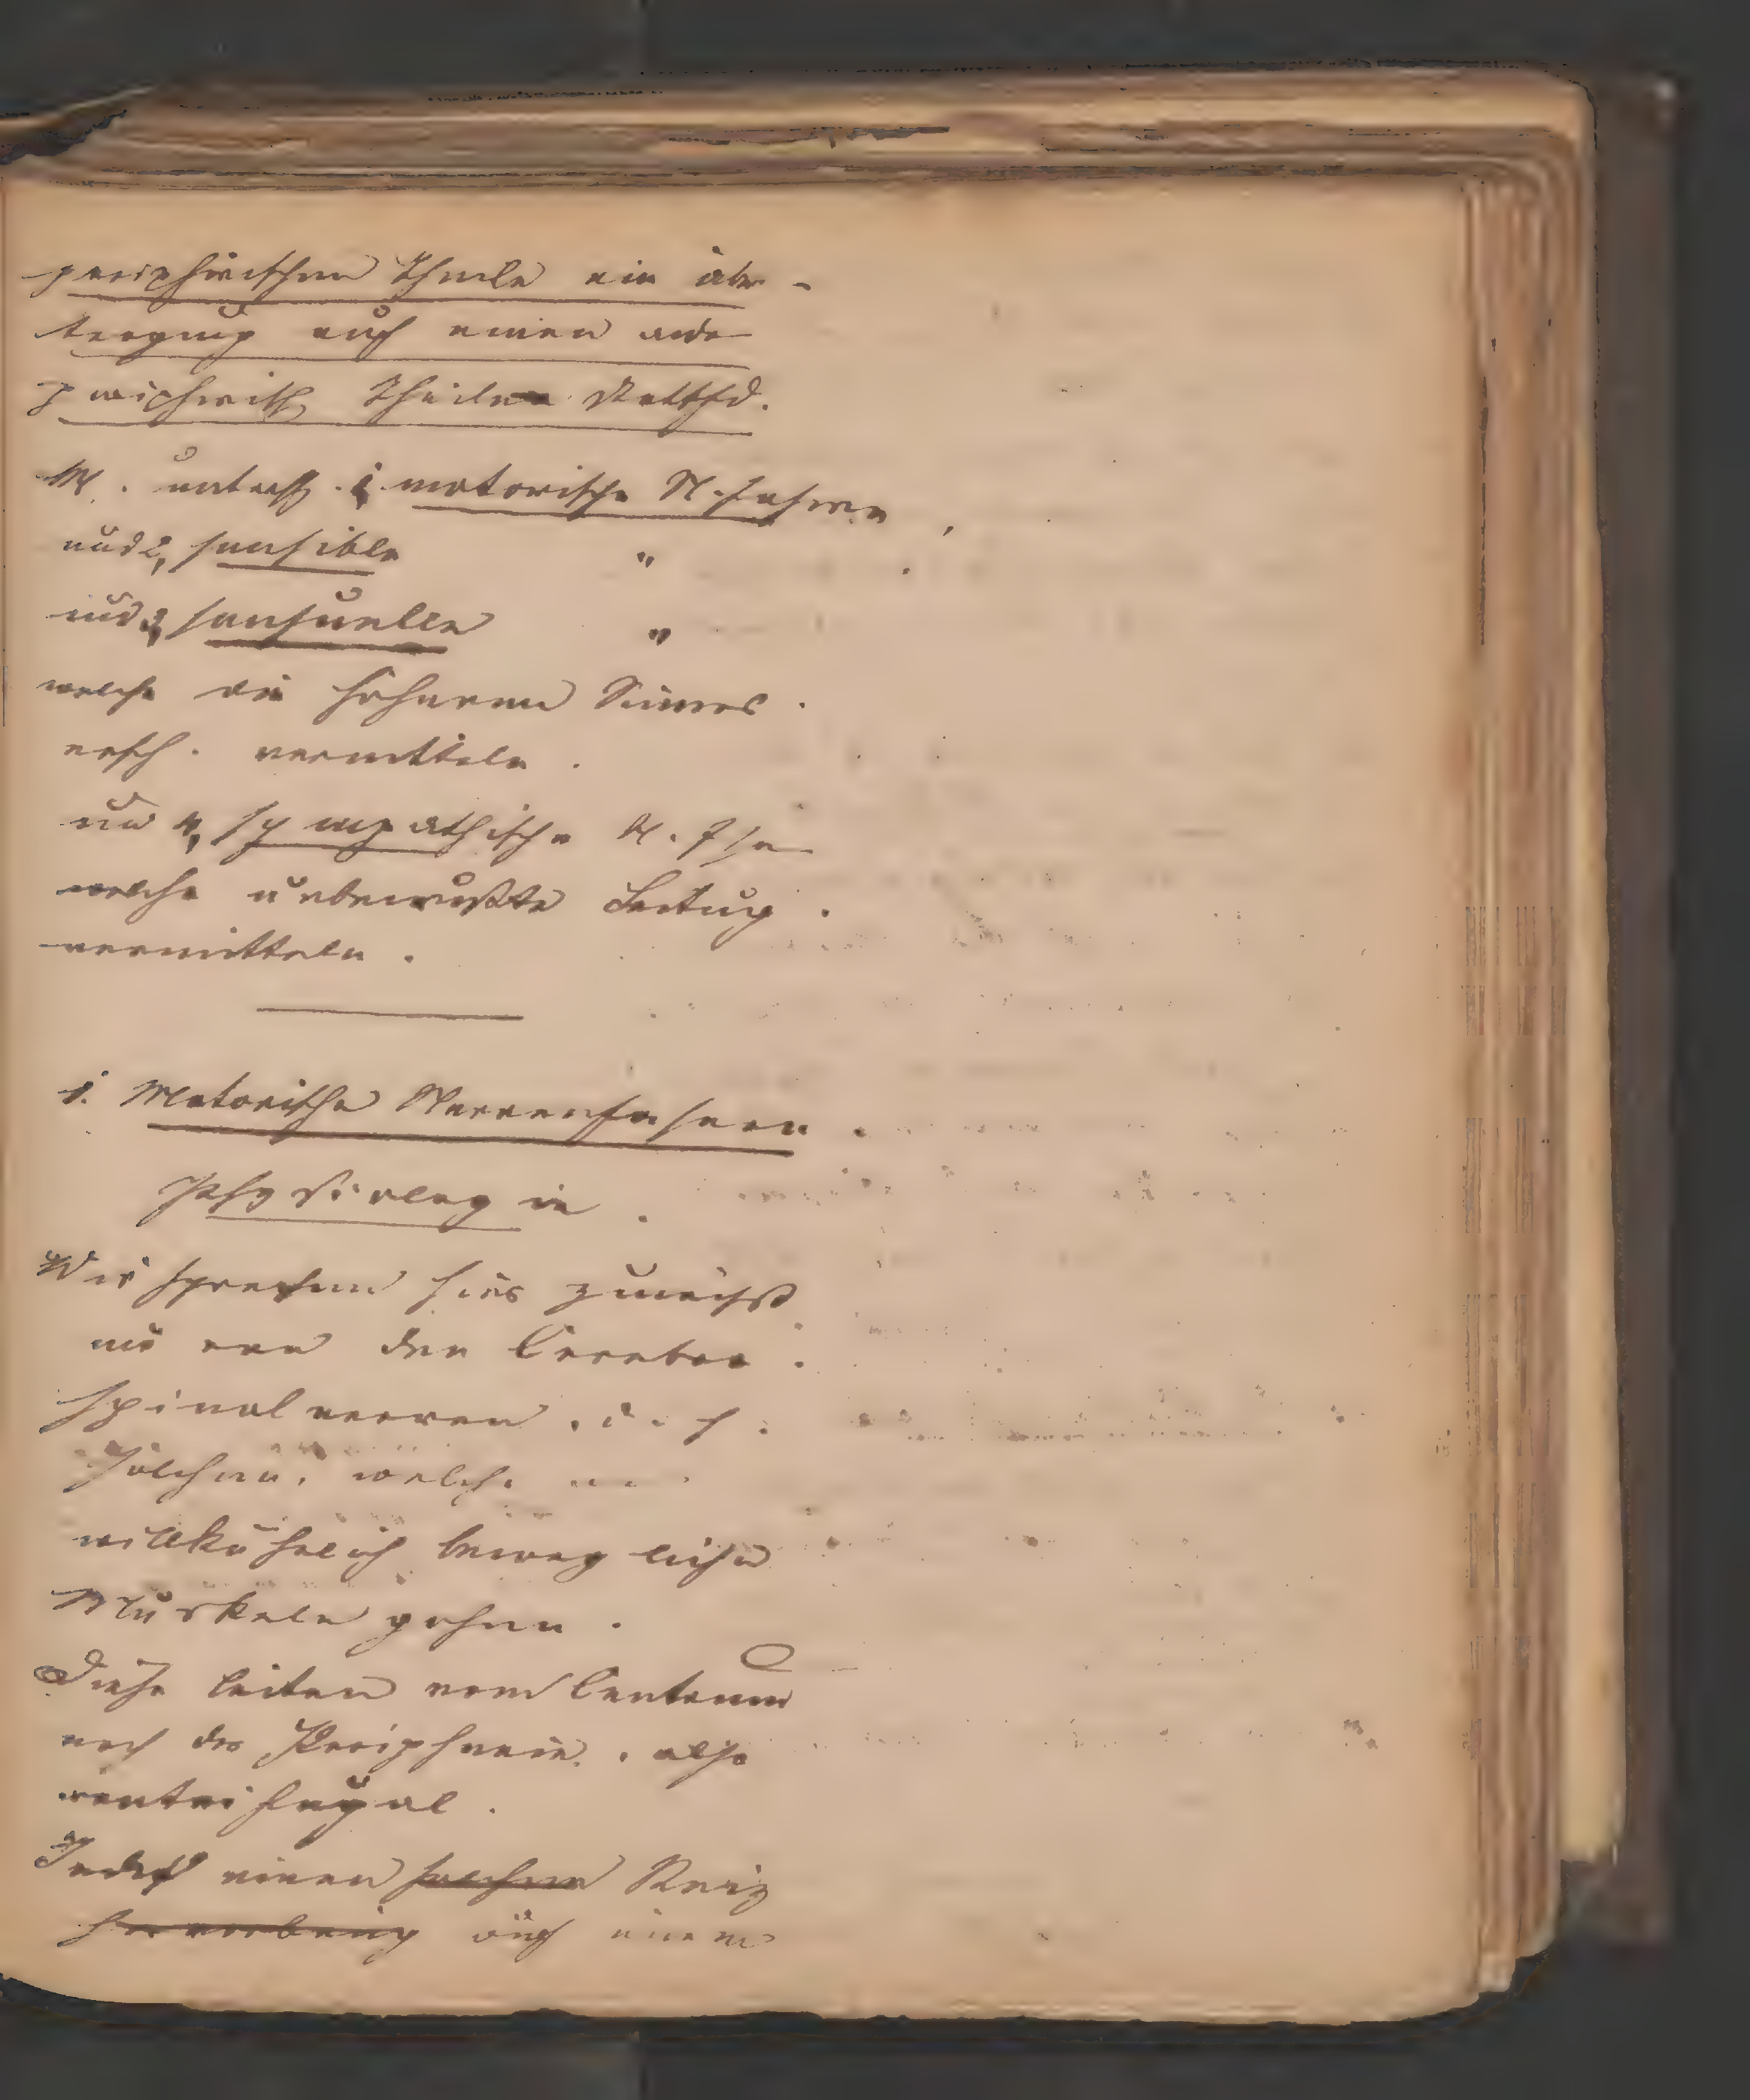 peripherischen Theile ein über-
tragung auf einen ande
peripherisch Theilen Stattfd.
M. untersch. 1. motorische N. fasern,
und 2, sensible "
und 3, sensuelle "
welche die höheren Sinnes
vermitteln.
und 4, sympathische N. Fsn
welche unbewußte Leitung.
vermitteln.
1. Motorische Nervenfasern.
Physiologie.
Wir sprechen hier zunächst
nur von den Cerebro
spinalnerven. d. h.
solchen, welche
willkührlich beweglichen
Muskeln gehen.
Diese leiten vom Centrum
nach der Peripherie, also
centrifugal.
einen solchen Reiz
auf einem